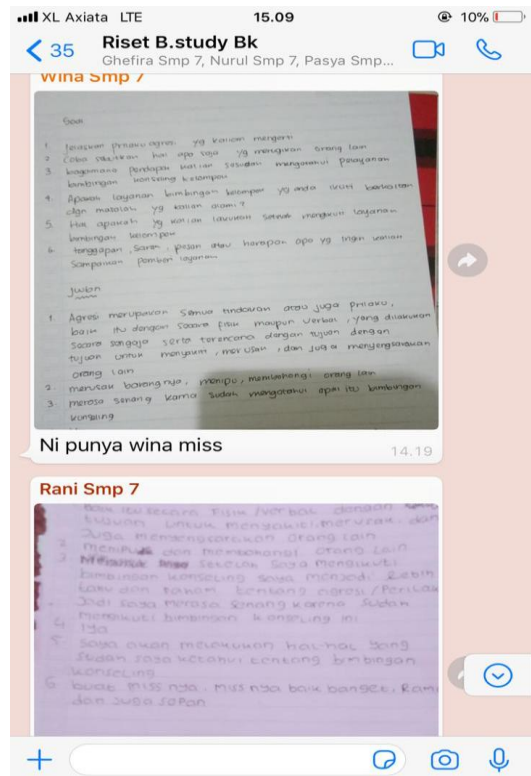 XL Axiata LTE 15.09 10%
35 Riset B.study Bk
Ghefira Smp 7, Nurul Smp 7, Pasya Smp...
Wina Smp 7
Soal
1 Jelaskan prilaku agresi yg kalian mengerti
2 Coba sebutkan hal apa saja yg merugikan orang lain
3. bagaimana pendapat kalian sesudah mengetahui pelayanan
bimbingan konseling kelompok
4. Apakah layanan bimbingan kelompok yg anda ikuti berkaitan
dgn masalah yg kalian alami?
5. Hal apakah yg kalian lakukan setelah mengikuti layanan
bimbingan kelompok
6 tanggapan, saran, pesan atau harapan apa yg ingin kalian
Sampaikan pemberi layanan
Jwban
1. Agresi merupakan semua tindakan atau juga prilaku,
baik itu dengan secara fisik maupun verbal, yang dilakukan
secara sengaja serta terencana dengan tujuan dengan
tujuan untuk menyakiti, merusak, dan juga menyengsarakan
orang lain
2. merusak barangnya, menipu, membohongi orang lain
3. merasa senang karna sudah mengetahui apa itu bimbingan
konseling
Ni punya wina miss
14.19
Rani Smp 7
baik itu secara fisik / verbal dengan
tujuan untuk menyakiti, merusak, dan
Juga mensengsarakan orang lain
2 menipu dan membohongi orang lain
3. setelah saya mengikuti
bimbingan konseling saya menjadi lebih
tahu dan paham tentang agresi / Perilaku
Jadi saya merasa senang karena sudah
mengikuti bimbingan konseling ini
4 Iya
5 saya akan melakukan hal-hal yang
sudah saya ketahui tentang bimbingan
konseling
6 buat miss nya, miss nya baik banget, Ramah
dan Juga sopan